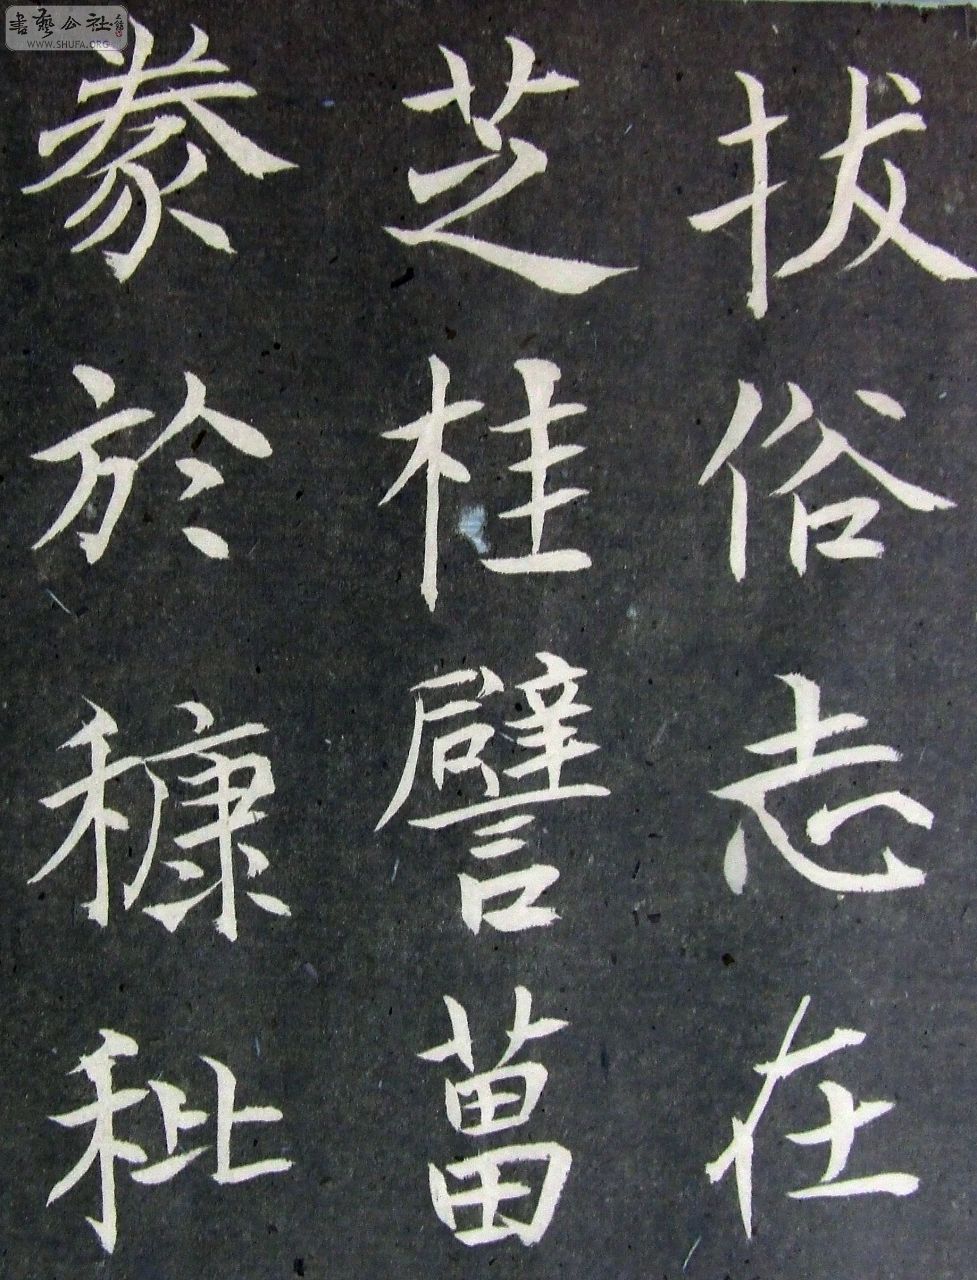 拔俗志在
芝桂譬芻
豢於穅秕
書藝公社
WWW.SHUFA.ORG